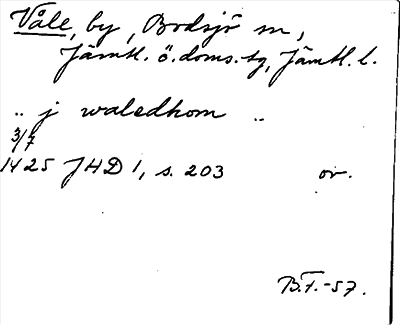 Våle, by, Bodsjö sn,
Jämtl. ö. doms. tg, Jämtl. l.
.. j waledhom ..
3/7
1425 JHD 1, s. 203 or.
B.T.-57.